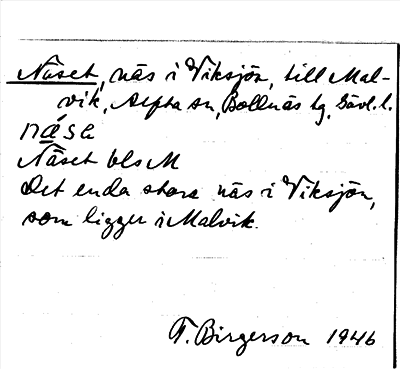 Näset, näs i Viksjön, till Mal-
vik, Alfta sn, Bollnäs tg, Gävl. l.
nä́sɛ
Näset bls M
Det enda stora näs i Viksjön,
som ligger i Malvik.
F. Birgerson 1946